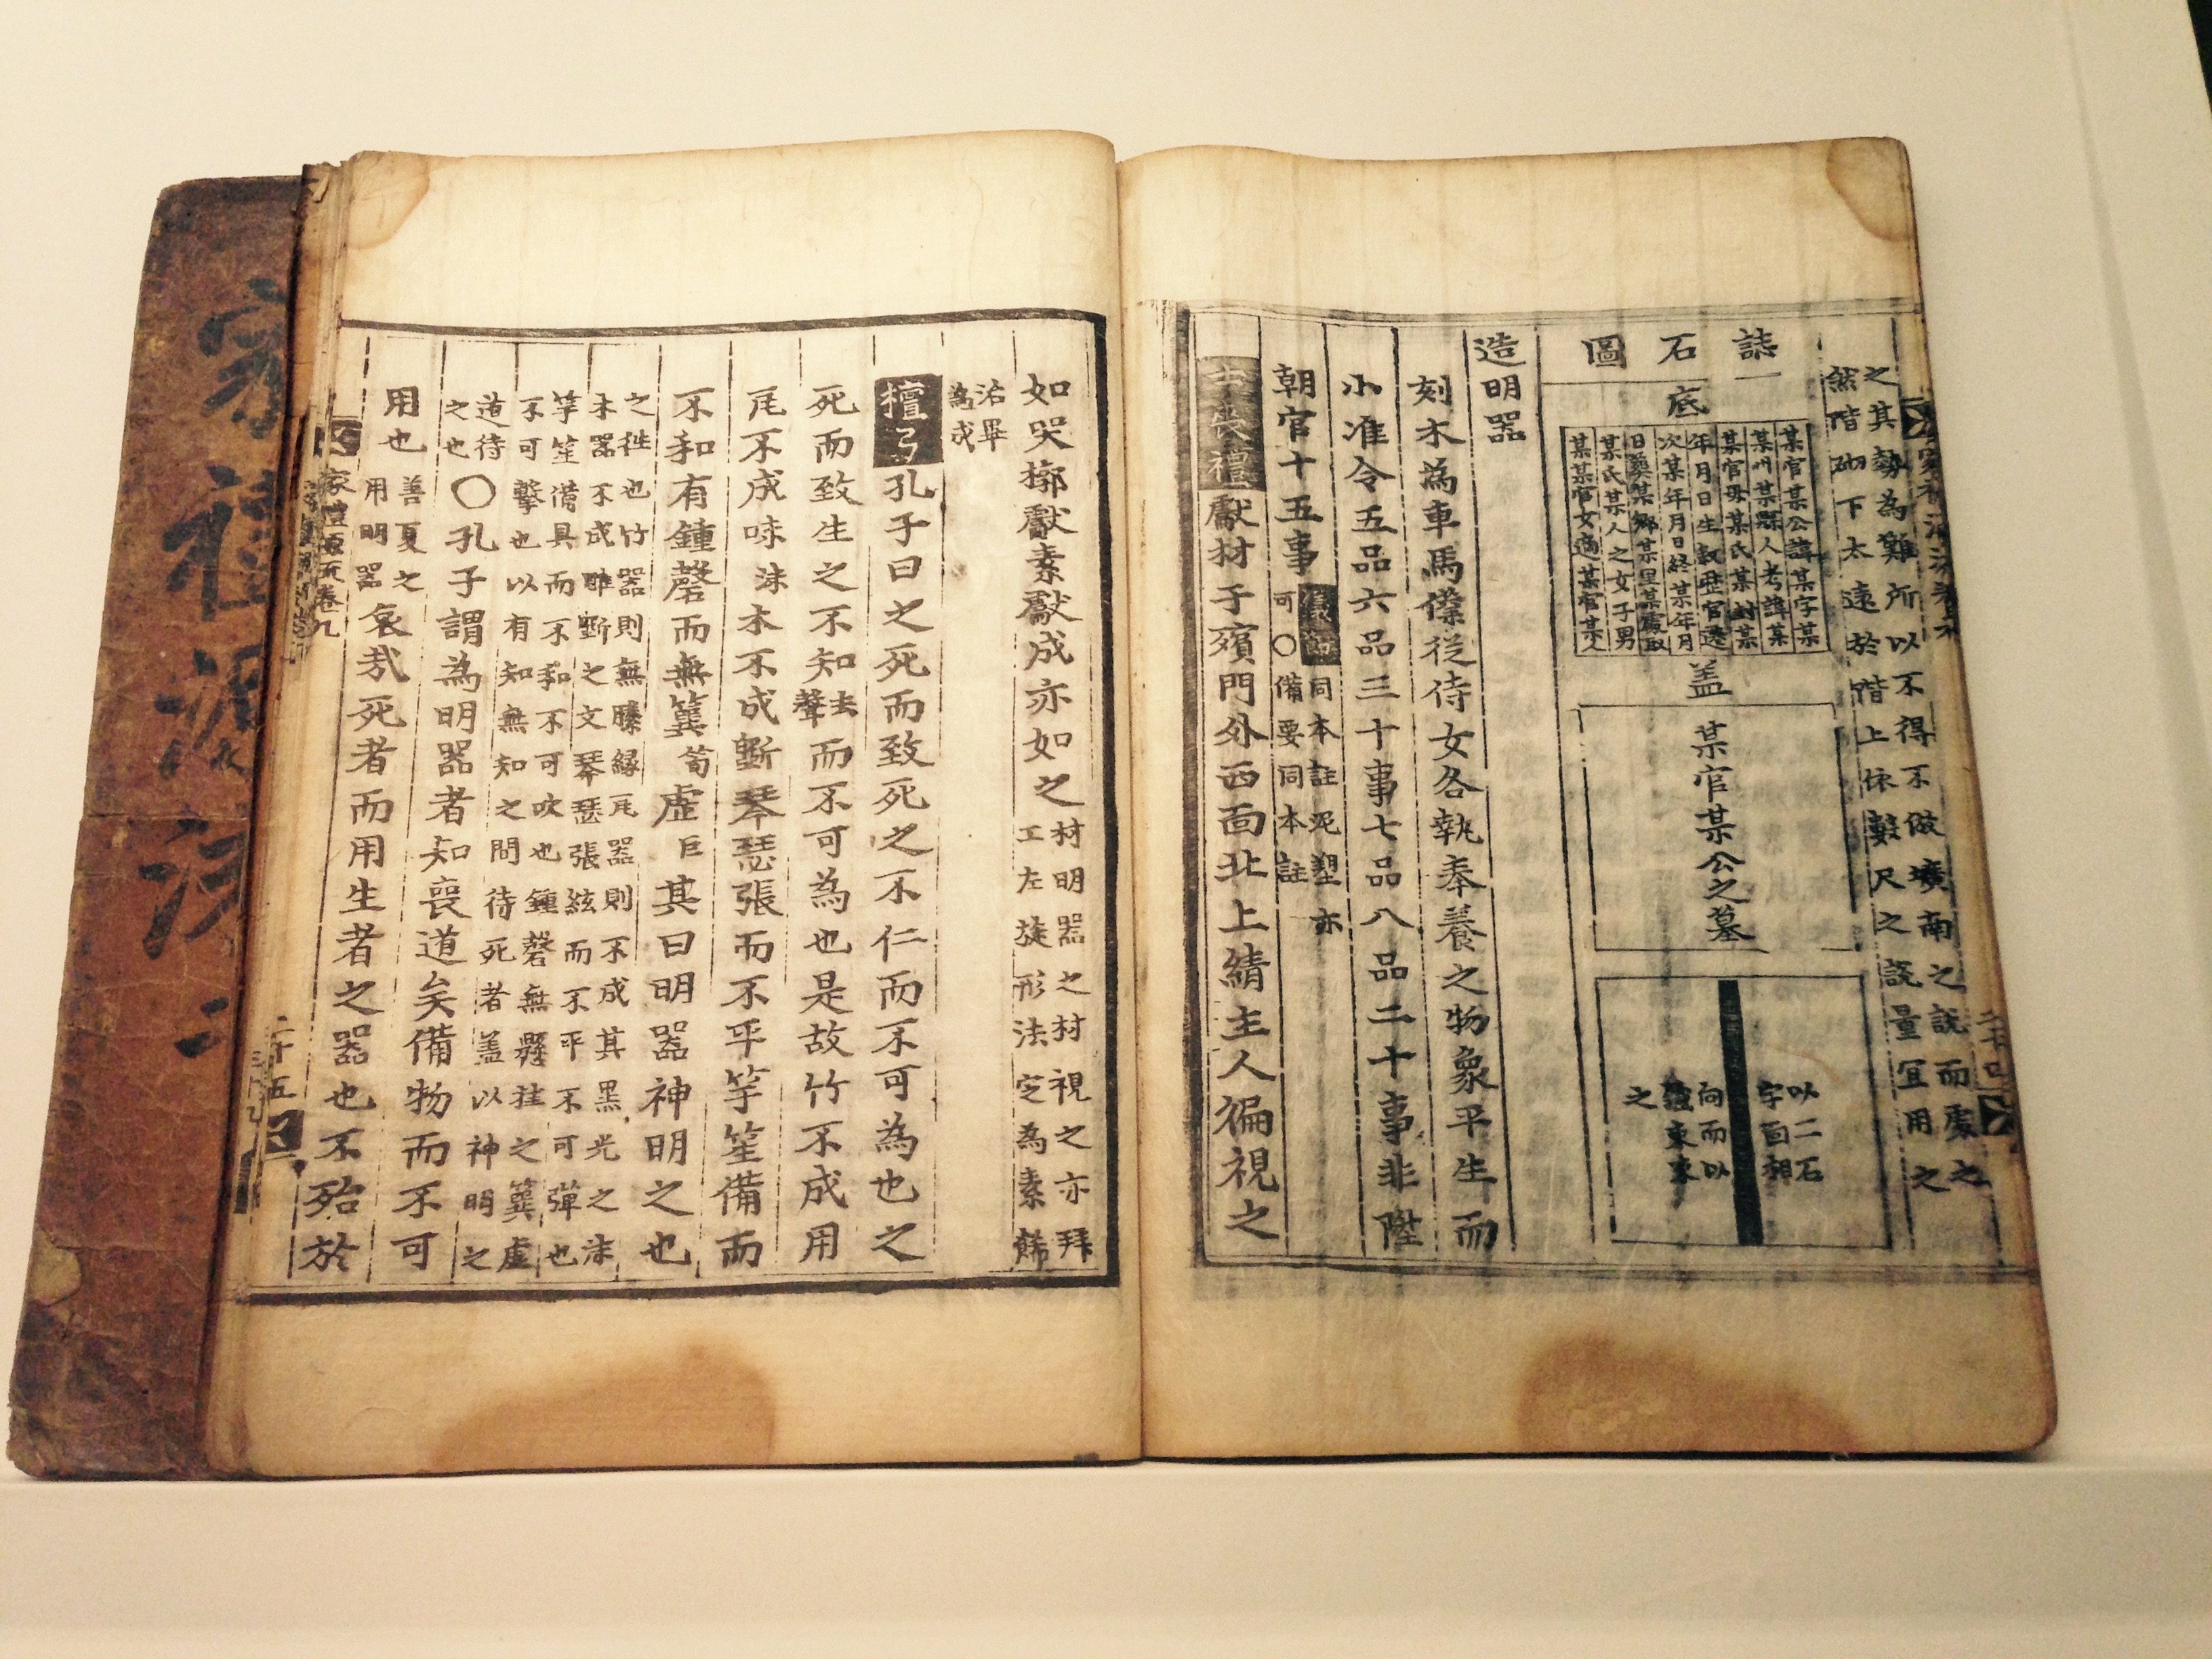 之其勢為難所以不得不做壙南之說而處之
然階砌下太遠於階上休數尺之說量宜用之
誌石圖
底
某官某公諱某字某
某州某縣人考諱某
某官母某氏某封某
年月日生叙歷官遷
次某年月日終某年月
日葬某鄉某里某處取
某氏某人之女子男
某某官女適某官某人
盖
某官某公之墓
以二石
字面相
向而以
鐵束束
之
造明器
刻木為車馬僕從侍女各執奉養之物象平生而
小准令五品六品三十事七品八品二十事非陞
朝官十五事
同本註泥塑亦
可〇備要同本註
士喪禮獻材于殯門外西面北上綪主人徧視之
如哭槨獻素獻成亦如之
材明器之材視之亦拜
工左旋形法定為素餙
治畢
為成
檀弓孔子曰之死而致死之不仁而不可為也之
死而致生之不知去聲而不可為也是故竹不成用
瓦不成味沬木不成斲琴瑟張而不平竽笙備而
不和有鍾磬而無簨筍虡巨其曰明器神明之也
之徃也竹器則無縢緣瓦器則不成其黑光之沬
木器不成雕斲之文琴瑟張絃而不平不可彈也
竽笙備具而不和不可吹也鍾磬無懸挂之簨虡
不可擊也以有知無知之間待死者盖以神明之
道待
之也
〇孔子謂為明器者知喪道矣備物而不可
用也
善夏之
用明器
哀㢤死者而用生者之器也不殆於
家禮源流卷九
二十五